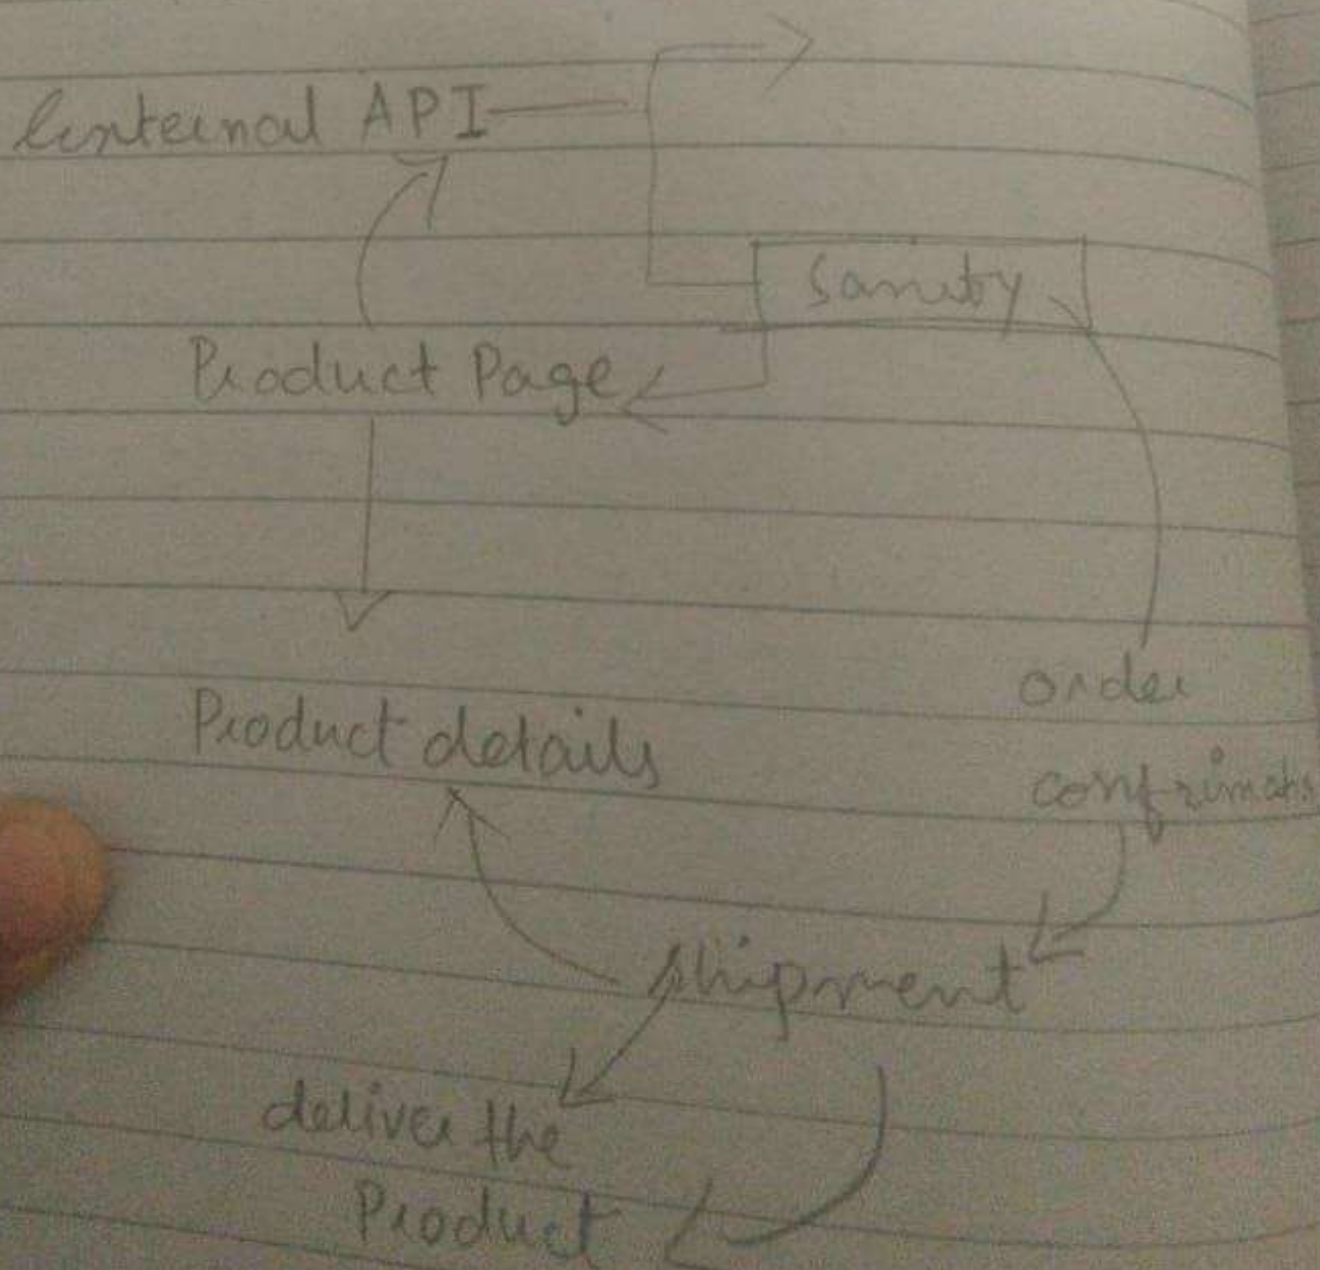 External API
Sanity
Product Page
Product details
order
shipment
deliver the
Product